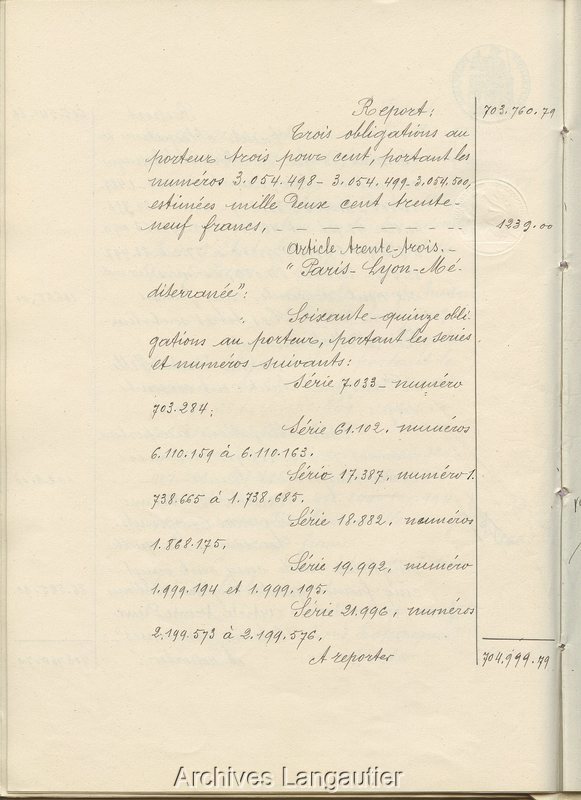 Report: 703.760.79
Trois obligations au
porteur trois pour cent, portant les
numéros 3.054.498 - 3.054.499 - 3.054.500,
estimées mille deux cent trente-
neuf francs, - - - - - - - 1239.00
Article trente-trois. -
"Paris-Lyon-Mé-
diterranée":
Soixante-quinze obli
gations au porteur, portant les séries
et numéros suivants:
Série 7.033 - numéro
703.284;
Série 61.102, numéros
6.110.159 à 6.110.163.
Série 17.387, numéro 1.
738.665 à 1.738.685.
Série 18.882, numéros
1.868.175,
Série 19.992, numéro
1.999.194 et 1.999.195.
Série 21.996, numéros
2.199.573 à 2.199.576.
A reporter 704.999.79
Archives Langautier